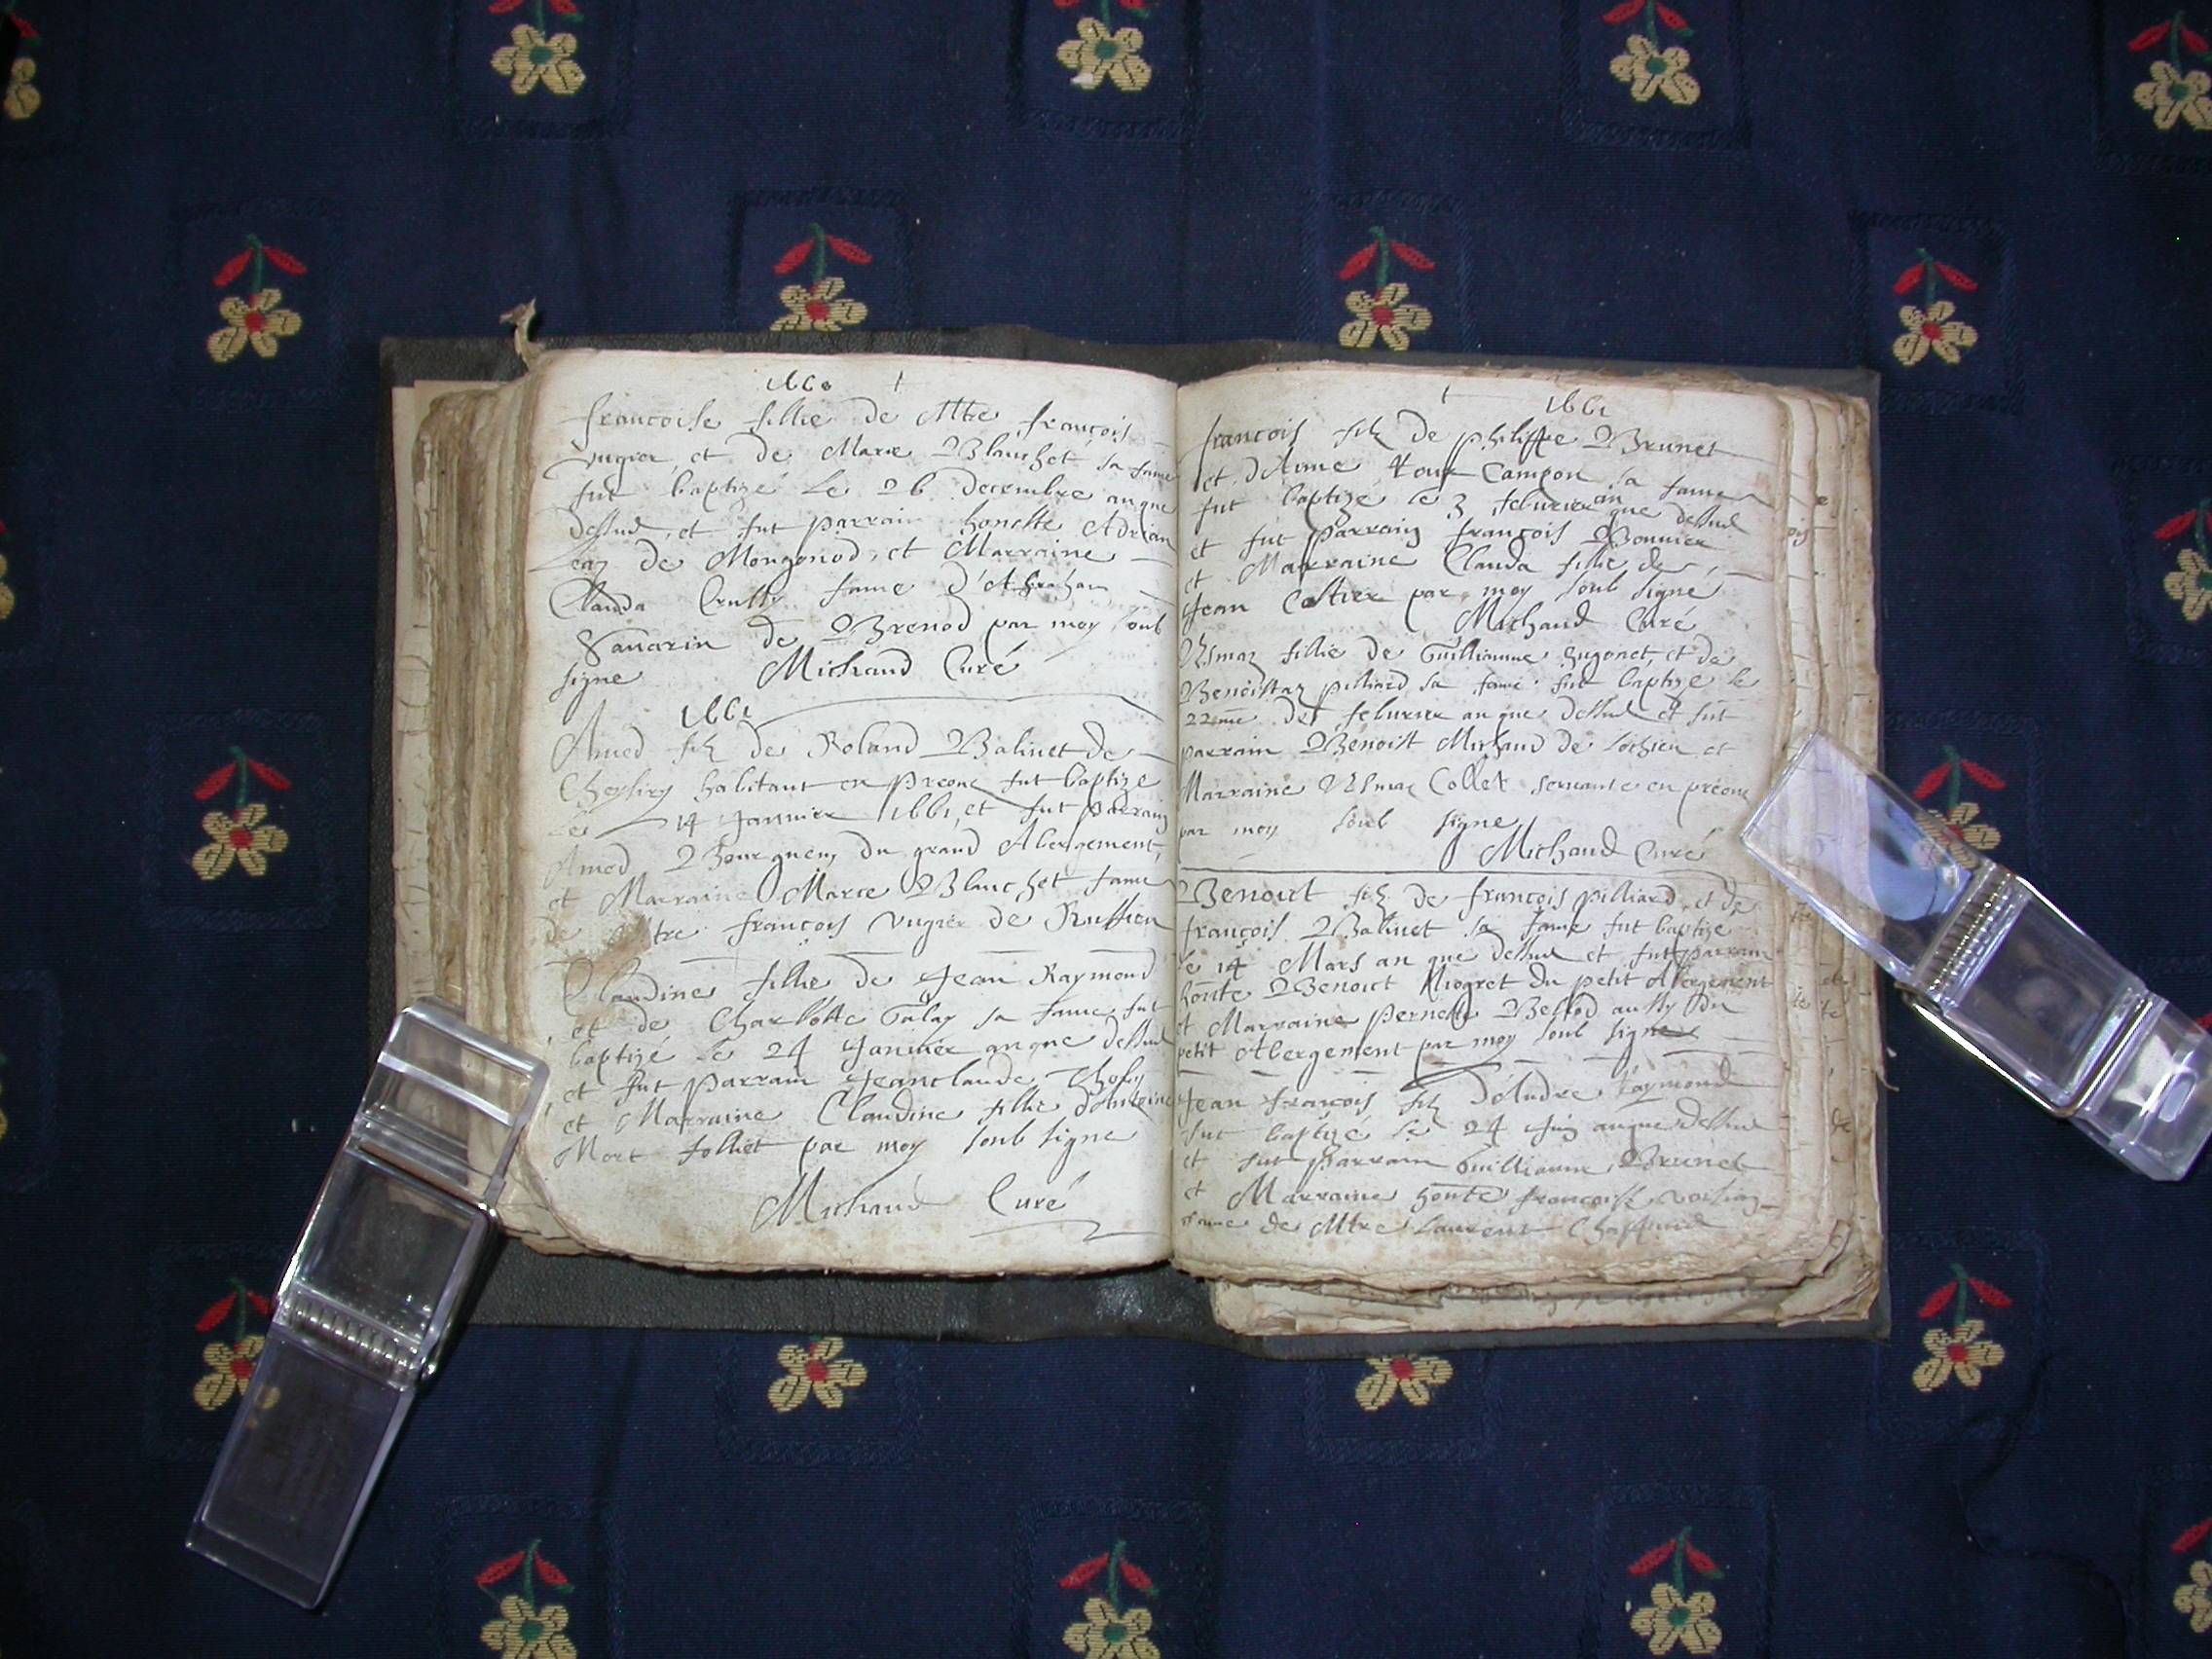 1660
francoise fillie de Mtre françois
Vugier et de Marie Blanchet sa fame
fut baptizé le 26 decembre an que
dessus, et fut parrain honeste Adrian
de Mongonod, et Marraine
Clauda fame d'Abraham
Sauarin de Brenod par moy soub
signe Michaud Curé
1661
Amed filz de Roland Balinet de
Cheysiry habitant en preone fut baptize
le 14 Januier 1661, et fut parrain
Amed Bourguen du grand Abergement,
et Marraine Marie Blanchet fame
de Mtre françois Vugier de Ruffieu
Claudine fillie de Jean Raymond
et de Charlotte Galay sa fame fut
baptizé le 24 Januier an que dessus
et fut parrain Jeanclaude
et Marraine Claudine fillie d'Antoine
Mort follliet par moy soub signe
Michaud Curé
1661
françois filz de philippe Brunet
et d'Anne Campon sa fame
fut baptizé le 3 feburier an que dessus
et fut parrain françois Bonnier
et Marraine Clauda fillie de
Jean Costier par moy soub signe
Michaud Curé
Esmaz fillie de Guillianme Hugonet, et de
Benoistaz pilliard sa fame fut baptize le
22me de feburier an que dessus et fut
parrain Benoist Michaud de Lochieu et
Marraine Esmaz Collet seruante en preone
par moy soub signe
Michaud Curé
Benoict filz de françois pilliard, et de
françois Balinet sa fame fut baptize
le 14 Mars an que dessus et fut parrain
honte Benoict Niogret du petit Abergement
et Marraine pernette Bellod aussy du
petit Abergement par moy soub signe
Jean françois filz d'Andre Raymond
fut baptizé le 24 Juin an que dessus
et fut parrain Guillianme Brunet
et Marraine honte francoise
fame de Mtre Laurent